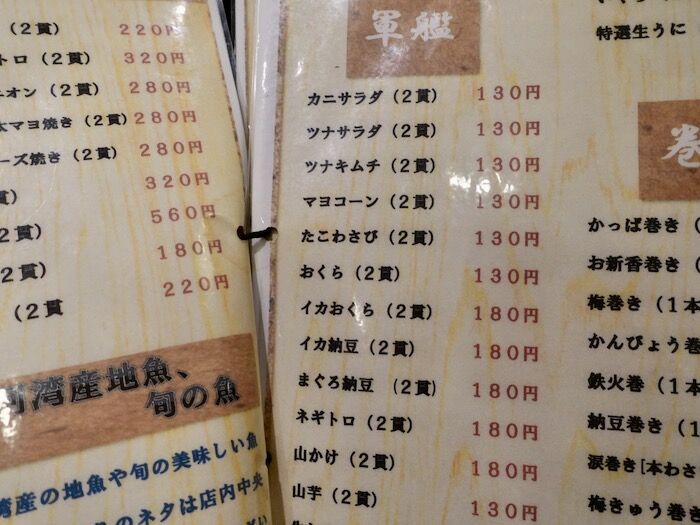 （２貫） 220円
トロ（２貫） 320円
ニオン（２貫） 280円
マヨ焼き（２貫） 280円
ーズ焼き（２貫） 280円
320円
２貫） 560円
２貫） 180円
（２貫 220円
湾産地魚、
旬の魚
湾産の地魚や旬の美味しい魚
のネタは店内中央
軍艦
カニサラダ（２貫） 130円
ツナサラダ（２貫） 130円
ツナキムチ（２貫） 130円
マヨコーン（２貫） 130円
たこわさび（２貫） 130円
おくら（２貫） 130円
イカおくら（２貫） 180円
イカ納豆（２貫） 180円
まぐろ納豆（２貫） 180円
ネギトロ（２貫） 180円
山かけ（２貫） 180円
山芋（２貫） 130円
特選生うに（
巻
かっぱ巻き（
お新香巻き（
梅巻き（１本
かんぴょう巻
鉄火巻（１本
納豆巻き（１
涙巻き［本わさ
梅きゅう巻き